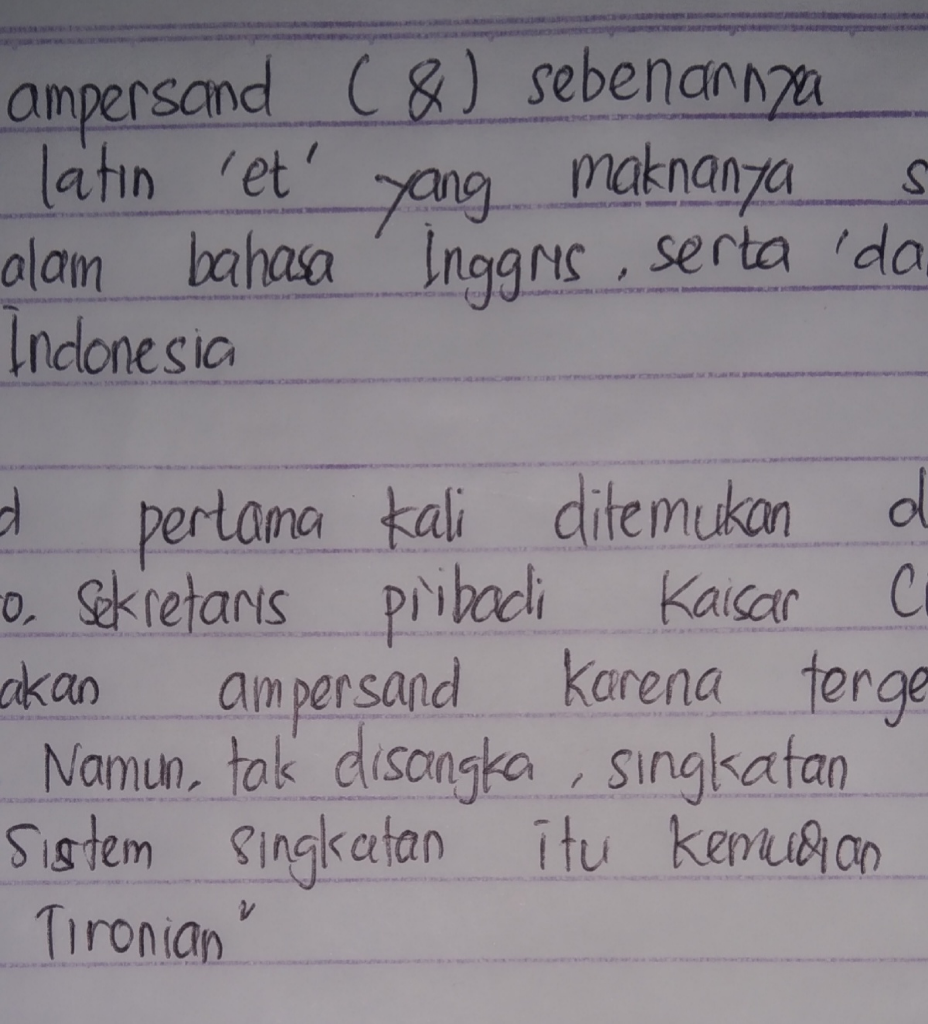 ampersand (&) sebenannya
latin 'et' yang maknanya s
alam bahasa Inggris, serta 'da
Indonesia
d pertama kali ditemukan d
o. Sekretaris pribadi Kaisar C
akan ampersand karena terge
Namun, tak disangka, singkatan
Sistem singkatan itu kemudian
Tironian"